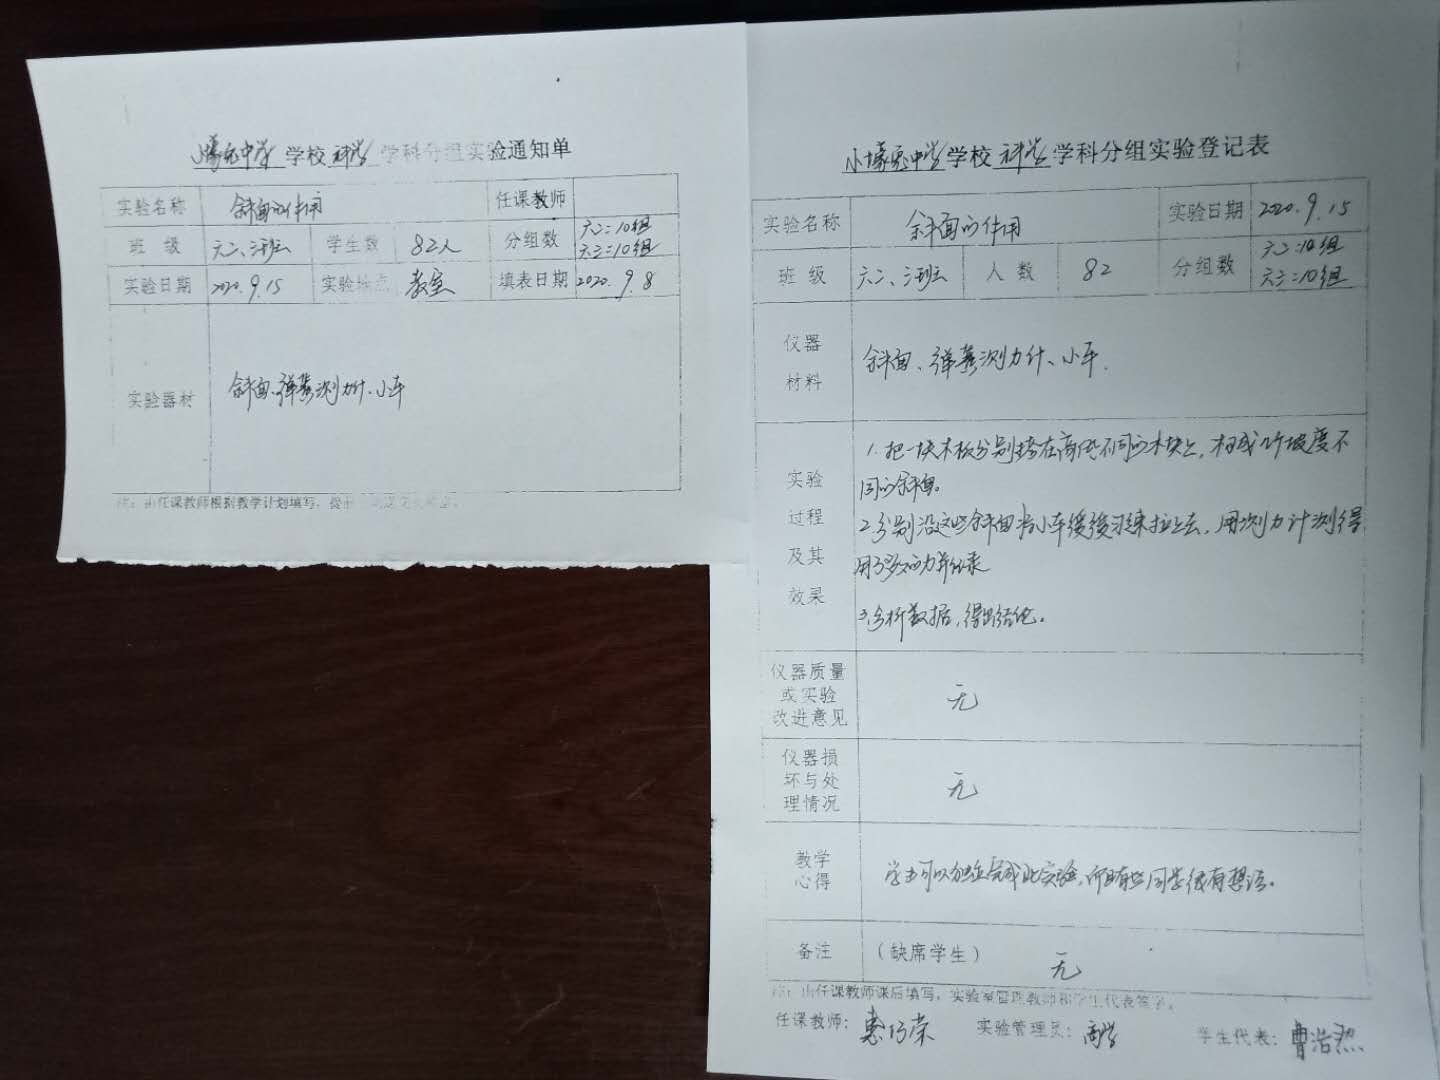 学校 科学 学科分组实验通知单
实验名称 斜面的作用 任课教师
班 级 六二、三班 学生数 82人 分组数 六二:10组 六三:10组
实验日期 2020.9.15 实验地点 教室 填表日期 2020.9.8
实验器材 斜面、弹簧测力计、小车
注：由任课教师根据教学计划填写，提前
小壕兔中学 学校 科学 学科分组实验登记表
实验名称 斜面的作用 实验日期 2020.9.15
班 级 六二、三班 人 数 82 分组数 六二:10组 六三:10组
仪器材料 斜面、弹簧测力计、小车.
实验过程及其效果
1.把一块木板分别搭在高低不同的木块上，构成几个坡度不
同的斜面。
2.分别沿这些斜面将小车缓缓匀速拉上去，用测力计测得
用了多大的力并纪录
3.分析数据，得出结论。
仪器质量或实验改进意见 无
仪器损坏与处理情况 无
教学心得 学生可以独立完成此实验，而且有些同学很有想法。
备注 （缺席学生） 无
注：由任课教师课后填写，实验室管理教师和学生代表签字。
任课教师： 惠巧荣 实验管理员： 学生代表： 曹浩然